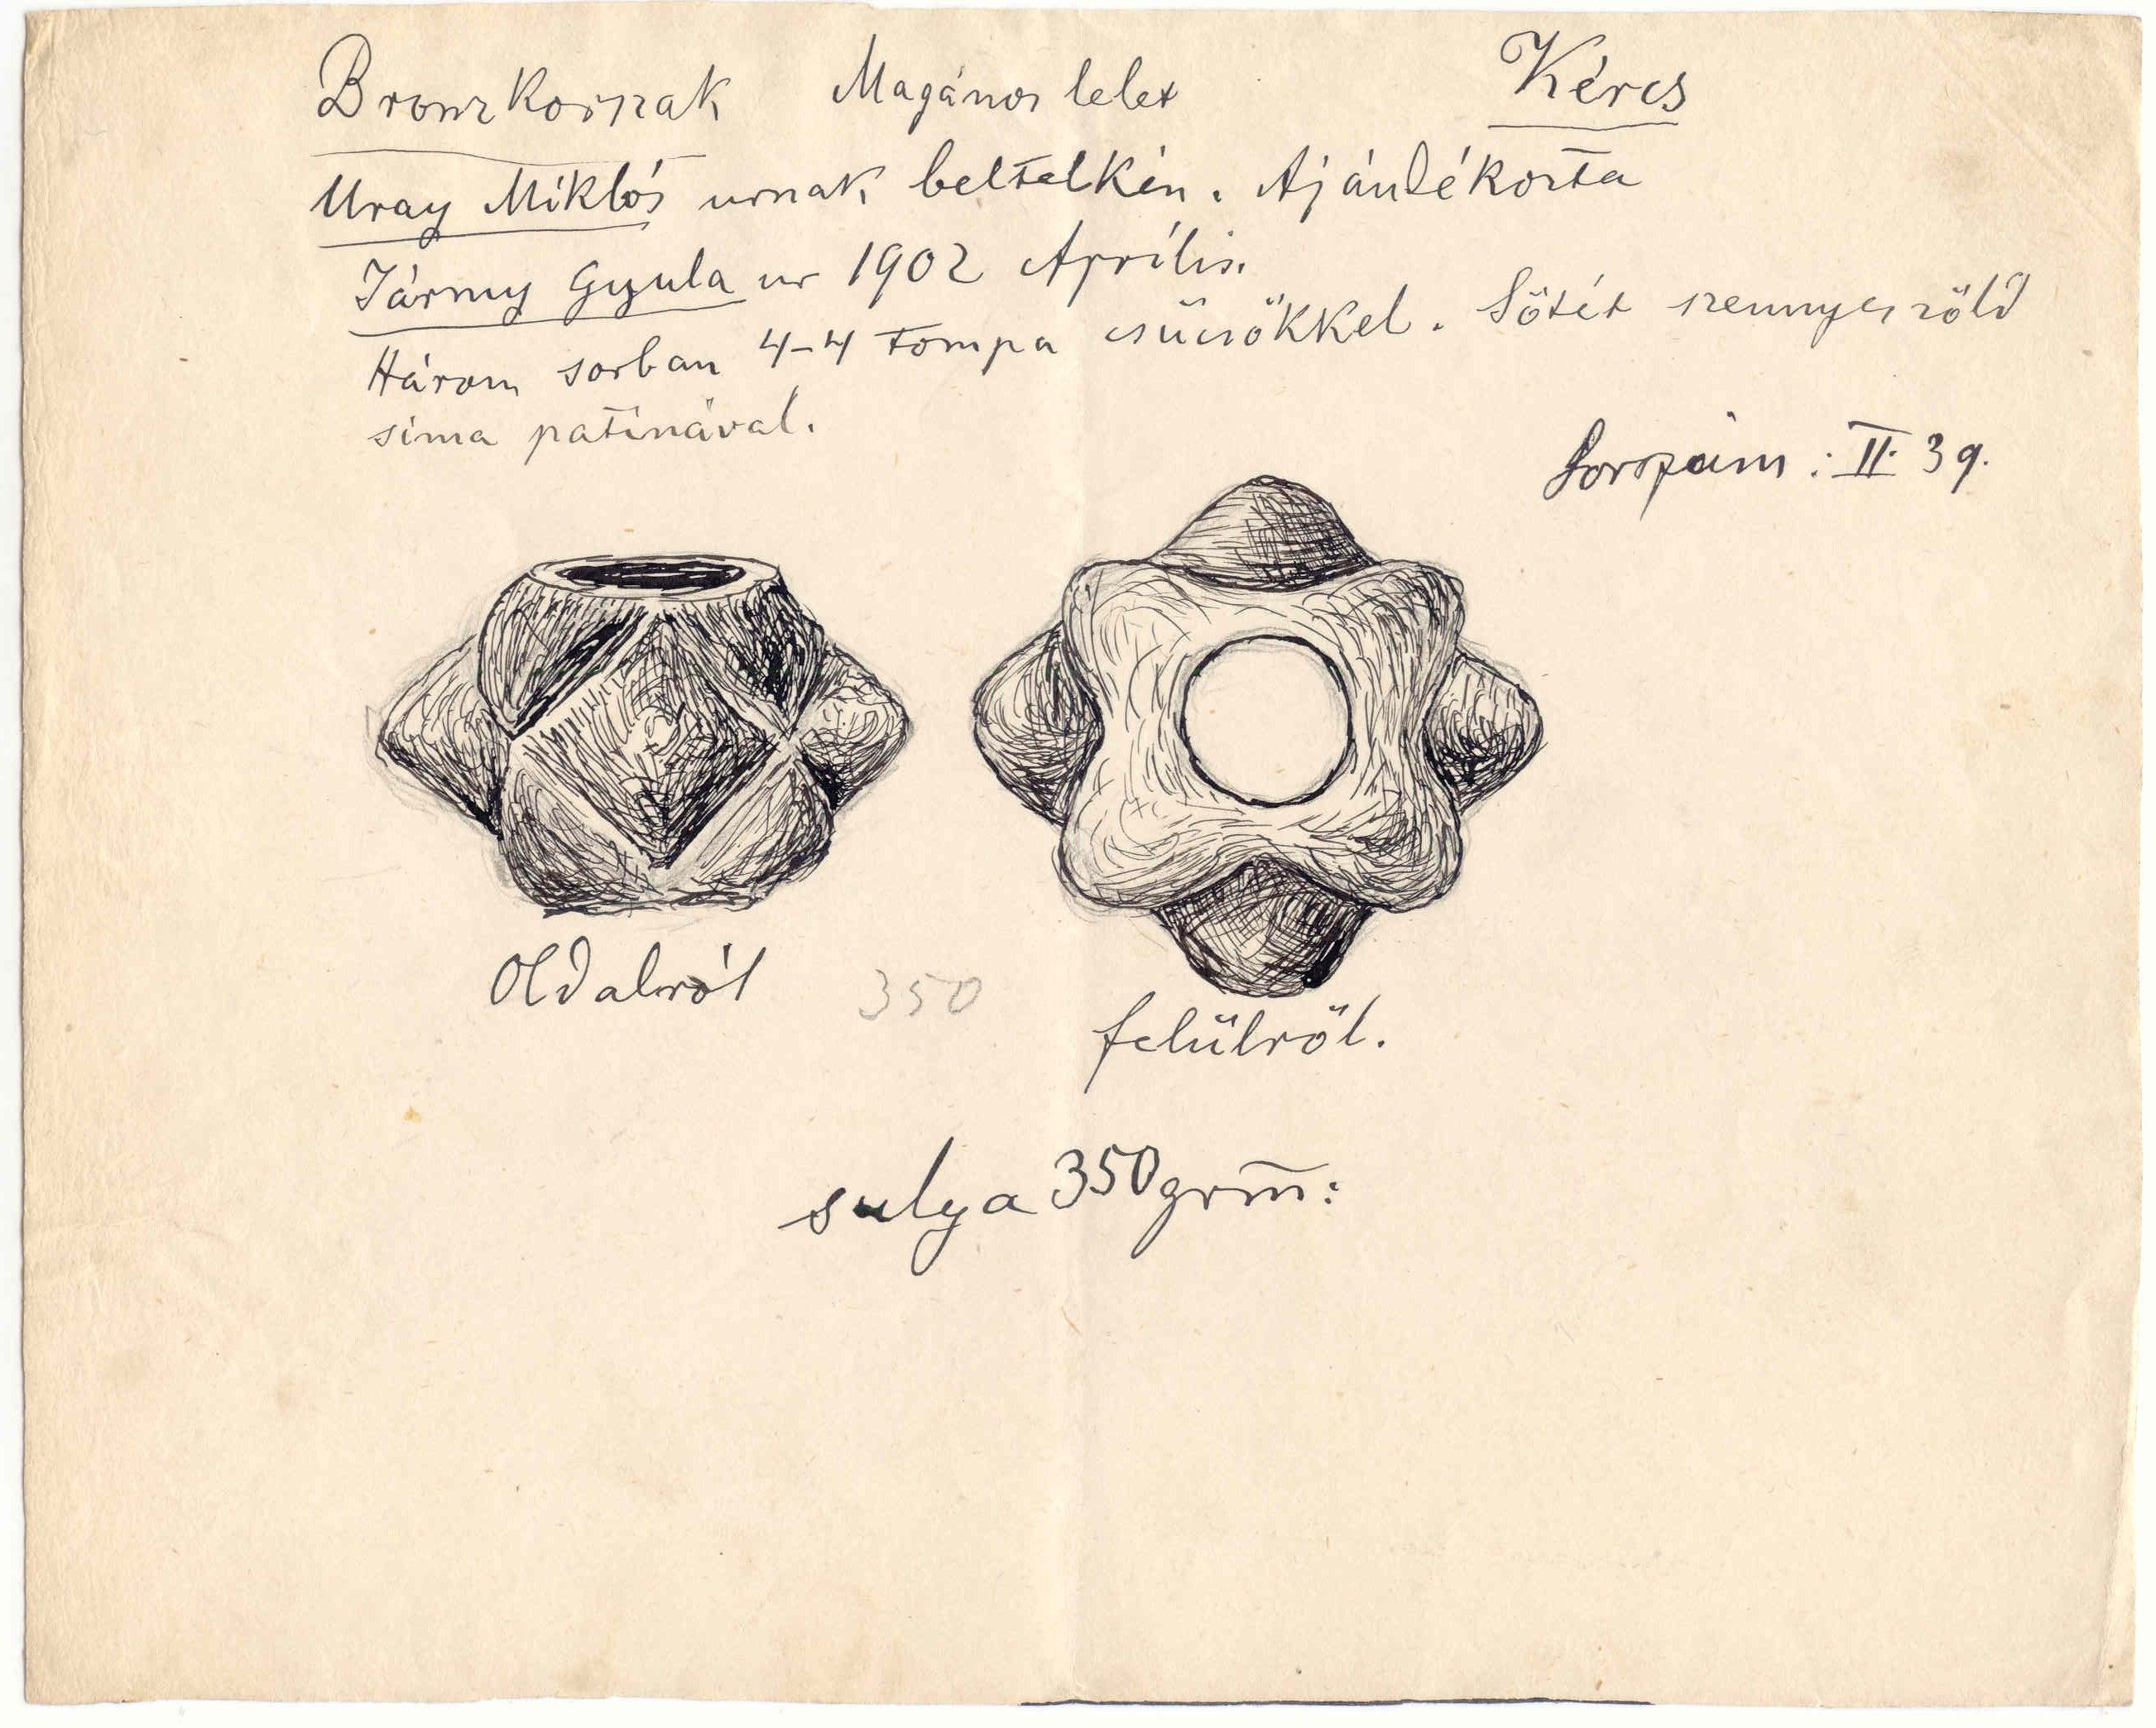 Bronzkorszak Magános lelet Kércs
Uray Miklós urnak beltelkén. Ajándékozta
Jármy Gyula ur 1902 Április.
Három sorban 4-4 tompa csücsökkel. Sötét szennyes zöld
sima patinával.
Sorszám: II. 39.
Oldalról
350
felülről.
sulya 350 grm: